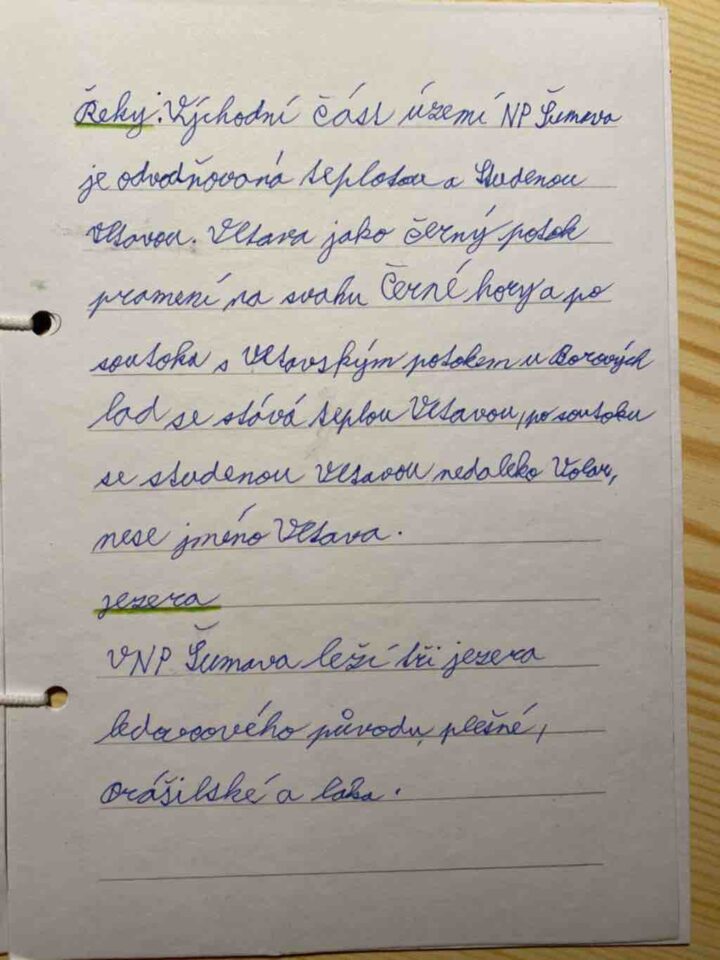 Řeky: Východní část území NP Šumava
je odvodňovaná teplotou a Studenou
Vltavou. Vltava jako černý potok
pramení na svahu Černé hory a po
soutoka s Vltavským potokem u Borových
lad se stává teplou Vltavou, po soutoku
se studenou Vltavou nedaleko Volar,
nese jméno Vltava.
jezera
V NP Šumava leží tři jezera
ledovcového původu, plešné,
Prášilské a laka.